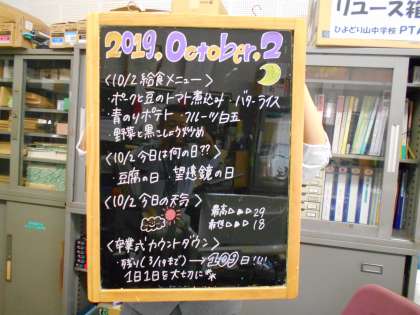 リユース箱
ひよどり山中学校 PTA
2019. October. 2
<10/2 給食メニュー>
・ポークと豆のトマト煮込み ・バターライス
・青のりポテト ・フルーツ白玉
野菜と黒こしょう炒め
<10/2 今日は何の日??>
・豆腐の日 ・望遠鏡の日
<10/2 今日の天気>
最高▷▷▷29
最低▷▷▷18
<卒業式カウントダウン>
・残り(3/19まで)→109日!!
1日1日を大切に